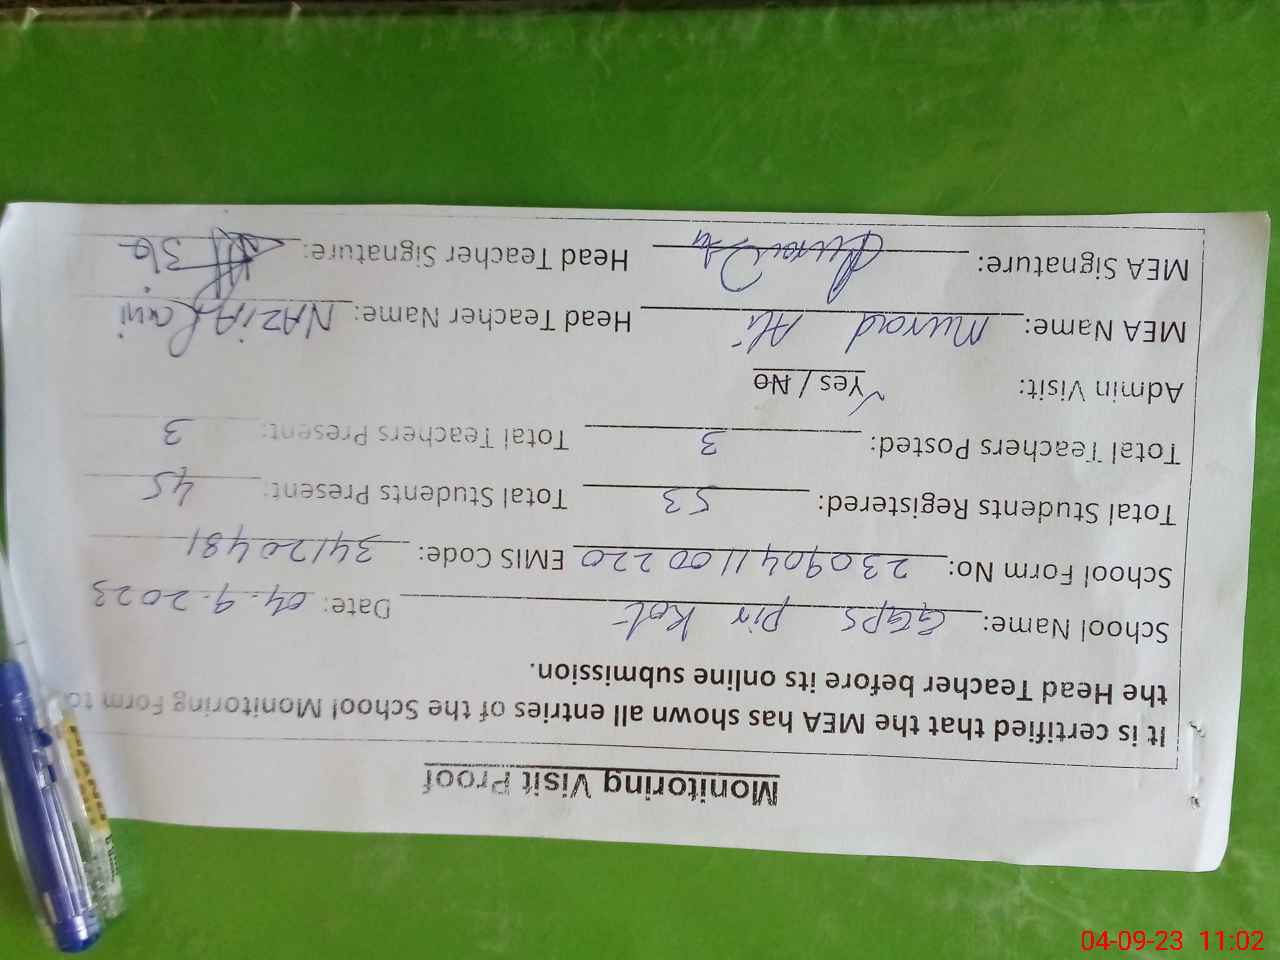 Monitoring Visit Proof
It is certified that the MEA has shown all entries of the School Monitoring Form to
the Head Teacher before its online submission.
School Name: GGPS Pir Kot Date: 04.9.2023
School Form No: 2309041100220 EMIS Code: 34120481
Total Students Registered: 53 Total Students Present: 45
Total Teachers Posted: 3 Total Teachers Present: 3
Admin Visit: Yes / No
MEA Name: Murad Ali Head Teacher Name: NAZiA
MEA Signature: Head Teacher Signature:
04-09-23 11:02